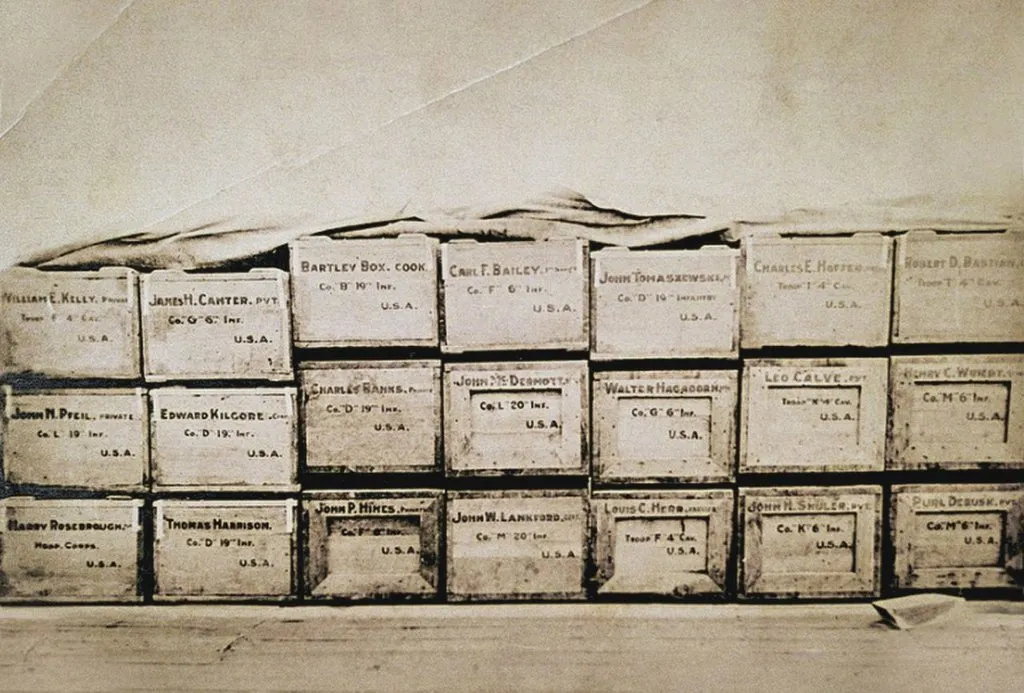 WILLIAM E. KELLY. PRIVATE
TROOP "F" 4" CAV.
U.S.A.
JAMES H. CANTER. PVT.
Co. "G" 6" INF.
U.S.A.
BARTLEY BOX. COOK.
Co. "B" 19" INF.
U.S.A.
CARL F. BAILEY.
Co. "F" 6" INF.
U.S.A.
JOHN TOMASZEWSKI.
Co. "D" 19" INFANTRY
U.S.A.
CHARLES E. HOFFER
TROOP "I" 4" CAV.
U.S.A.
ROBERT D. BASTIAN.
TROOP 4" CAV.
U.S.A.
JOHN N. PFEIL. PRIVATE
Co. L" 19" INF.
U.S.A.
EDWARD KILGORE.
Co. "D" 19." INF.
U.S.A.
CHARLES BANKS.
Co. "D" 19" INF.
U.S.A.
JOHN McDERMOTT.
Co. "L" 20" INF.
U.S.A.
WALTER HAGADORN.
Co. "G" 6" INF.
U.S.A.
LEO CALVE. PVT.
TROOP "K" 4" CAV.
U.S.A.
HENRY C.
Co. "M" 6" INF.
U.S.A.
HARRY ROSEBROUGH.
HOSP. CORPS.
U.S.A.
THOMAS HARRISON.
Co. "D" 19" INF.
U.S.A.
JOHN P. HINES. PRIVATE
Co. "F" INF.
U.S.A.
JOHN W. LANKFORD.
Co. "M" 20" INF.
U.S.A.
LOUIS C. HERR.
TROOP "F" 4" CAV.
U.S.A.
JOHN H. SHULER. PVT.
Co. "K" 6" INF.
U.S.A.
PURL DEBUSK. PVT.
Co. "M" 6" INF.
U.S.A.